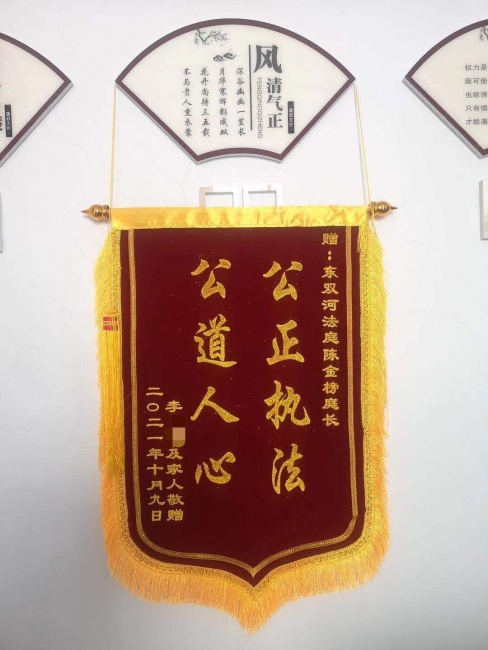 风清气正
FENGQINGQIZHENG
深谷幽幽一茎长
月华寒辉影成双
花开尚待三五载
不与贵人重衣裳
权力是
既可使
也能诱
只有慎
才能遏
赠：东双河法庭陈金榜庭长
公正执法
公道人心
李 及家人敬赠
二〇二一年十月九日